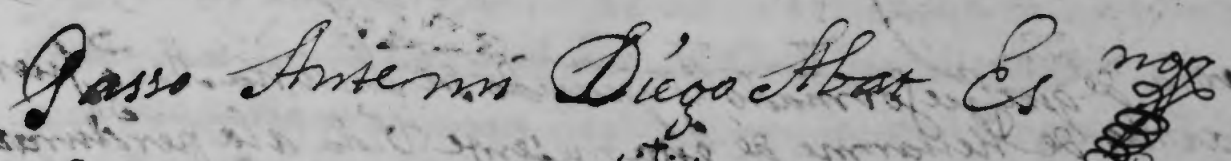 Passo Antemi Diego Abat Es.no